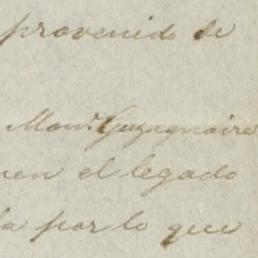 provenido de
Monr. Guzignaire
en el legado
la por lo que